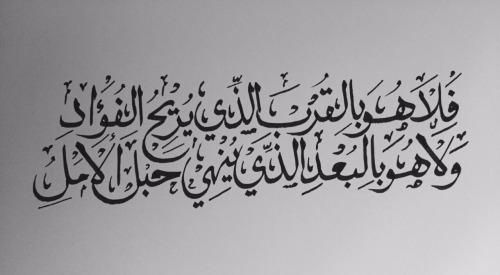 فَلَا هُوَ بِالقُرْبِ الَّذِي يُرِيحُ الفُؤَاد
وَلَا هُوَ بِالبُعْدِ الَّذِي يُنْهِي حَبْلَ الأَمَلِ